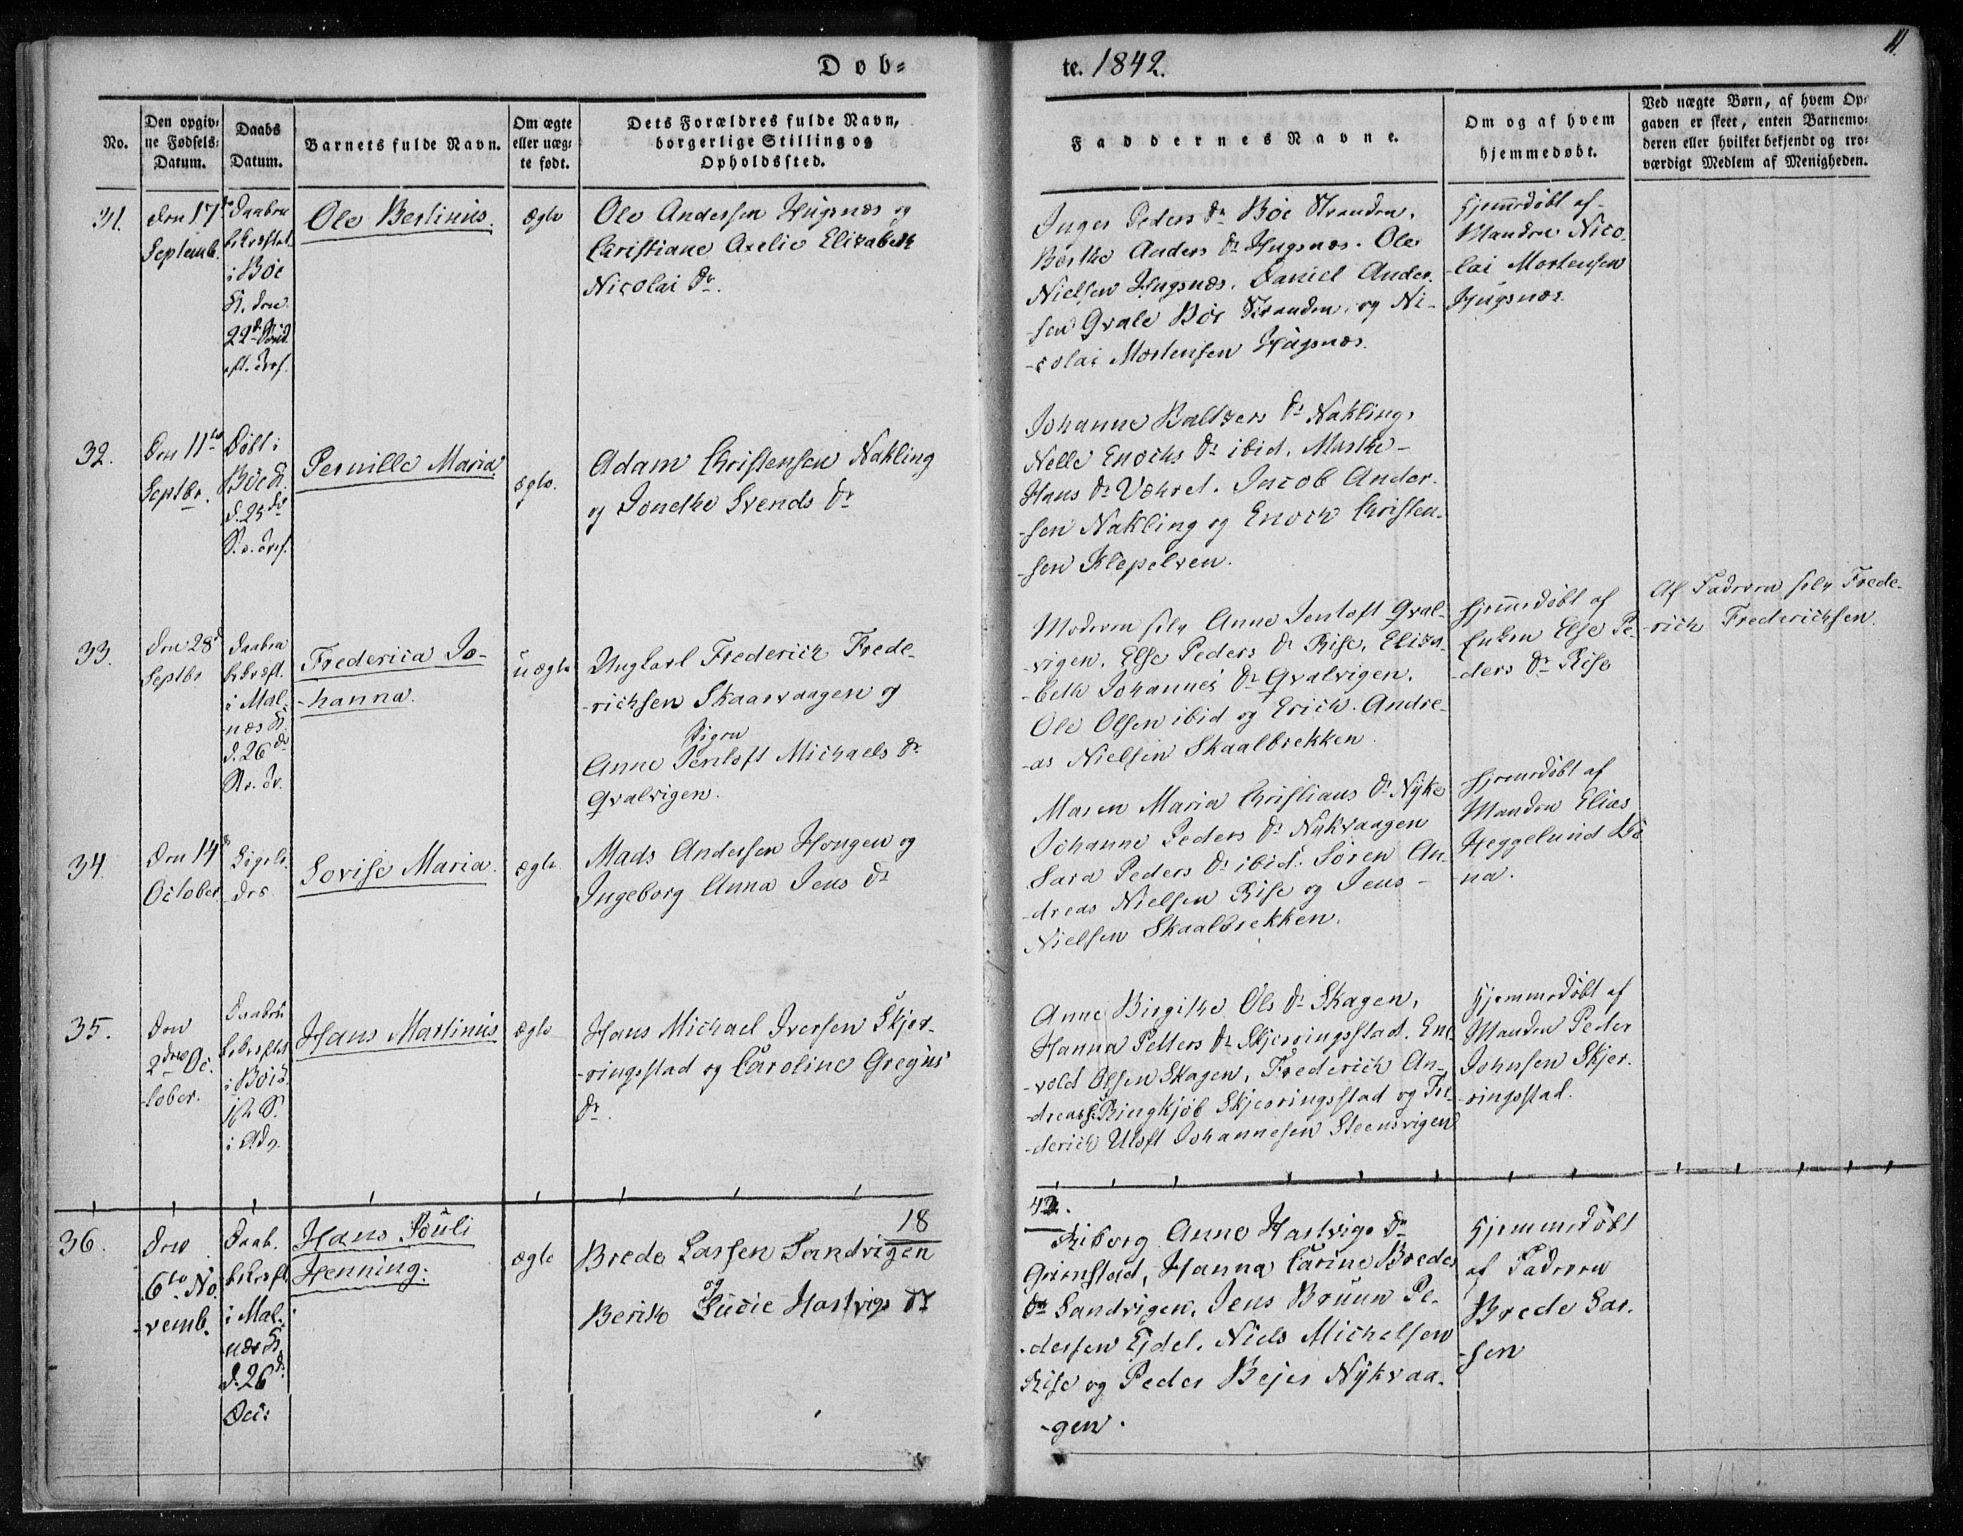 Døb-
te. 1842.
11.
No.
Den opgiv-
ne Fødsels-
Datum.
Daabs
Datum.
Barnets fulde Navn.
Om ægte
eller uæg-
te født.
Dets Forældres fulde Navn,
borgerlige Stilling og
Opholdssted.
Faddernes Navne.
Om og af hvem
hjemmedøbt.
Ved uægte Børn, af hvem Op-
gaven er skeet, enten Barnemo-
deren eller hvilket bekjendt og tro-
værdigt Medlem af Menigheden.
31.
den 17
Septemb.
Daaben
bekræftet
i Böe
K. den
22
Ole Bertinus.
ægte
Ole Andersen Hugsnæs og
Christiane Axelie Elizabeth
Nicolai Dr.
Inger Peders Dr Böe Stranden,
Berthe Anders Dr Hugsnæs. Ole
Nielsen Hugsnæs, Daniel Ander-
-sen Qvale Böe Stranden, og Ni-
-colai Mortensen Hugsnæs.
Hjemmedøbt af
Manden Nico-
-lai Mortensen
Hugsnæs.
32.
Den 11te
Septbr.
Döbt i
Böe K.
d. 25de
Pernille Maria
ægte.
Adam Christensen Nakling
og Jonethe Svends Dr
Johanne Baltzers Dr Nakling,
Nelle Enochs Dr ibid, Marthe
Hans Dr Væhret. Jacob Ander-
-sen Nakling og Enoch Christen-
-sen Klepelven.
33.
Den 28d
Septbr
Daaben
bekræft.
i Mal-
næs K.
d. 26de
Fredericia Jo-
-hanna.
uægte
Ungkarl Frederich Frede-
-richsen Skaarvaagen og
Pigen
Anne Jentoft Michaels Dr
Qvalvigen.
Moderen selv Anne Jentoft Qval-
-vigen, Else Peders Dr Rise, Eliza-
-beth Johannes Dr Qvalvigen,
Ole Olsen ibid og Erich Andre-
-as Nielsen Skaalbrekken.
Hjemmedøbt af
Enken Else Pe-
-ders Dr Rise
Af Faderen selv Frede-
-rich Frederichsen.
34.
Den 14
October
Ligele-
des
Lovise Maria.
ægte
Mads Andersen Hougen og
Ingeborg Anna Jens Dr
Maren Maria Christians Dr Nyke
Johanne Peders Dr Nykvaagen
Sara Peders Dr ibid. Søren An-
-dreas Nielsen Rise og Jens
Nielsen Skaalbrekken.
Hjemmedøbt af
Manden Elias
Heggelund
35.
Den
2den Oc-
-tober.
Daaben
bekræftet
i Böe
1ste S.
i Adv.
Hans Martinus
ægte
Hans Michael Iversen Skjer-
-ringsstad og Caroline Gregus
Dr.
Anne Birgithe Ols Dr Skagen,
Hanna Petters Dr Skjerringsstad. En-
-vold Olsen Skagen, Frederich An-
-dreas Ringkjöb Skjerringsstad og Fre-
-derich Utoft Johannesen Steensvigen
Hjemmedøbt af
Manden Peder
Johnsen Skjer-
-ringsstad.
36.
Den
6te No-
-vemb.
Daab.
bekræft.
i Mal-
næs K.
d. 26d
Dec:
Hans Pouli
Henning.
ægte
18
Brede Larsen Sandvigen
og
Berith Lucie Hartvigs Dr
42.
Riborg Anne Hartvigs Dr
Grimstad, Hanna Carine Bredes
Dr Sandvigen, Jens Bruun Pe-
-dersen Eidet, Niels Michelsen
Rise og Peder Bejer Nykvaa-
-gen.
Hjemmedøbt
af Faderen
Brede Lar-
-sen